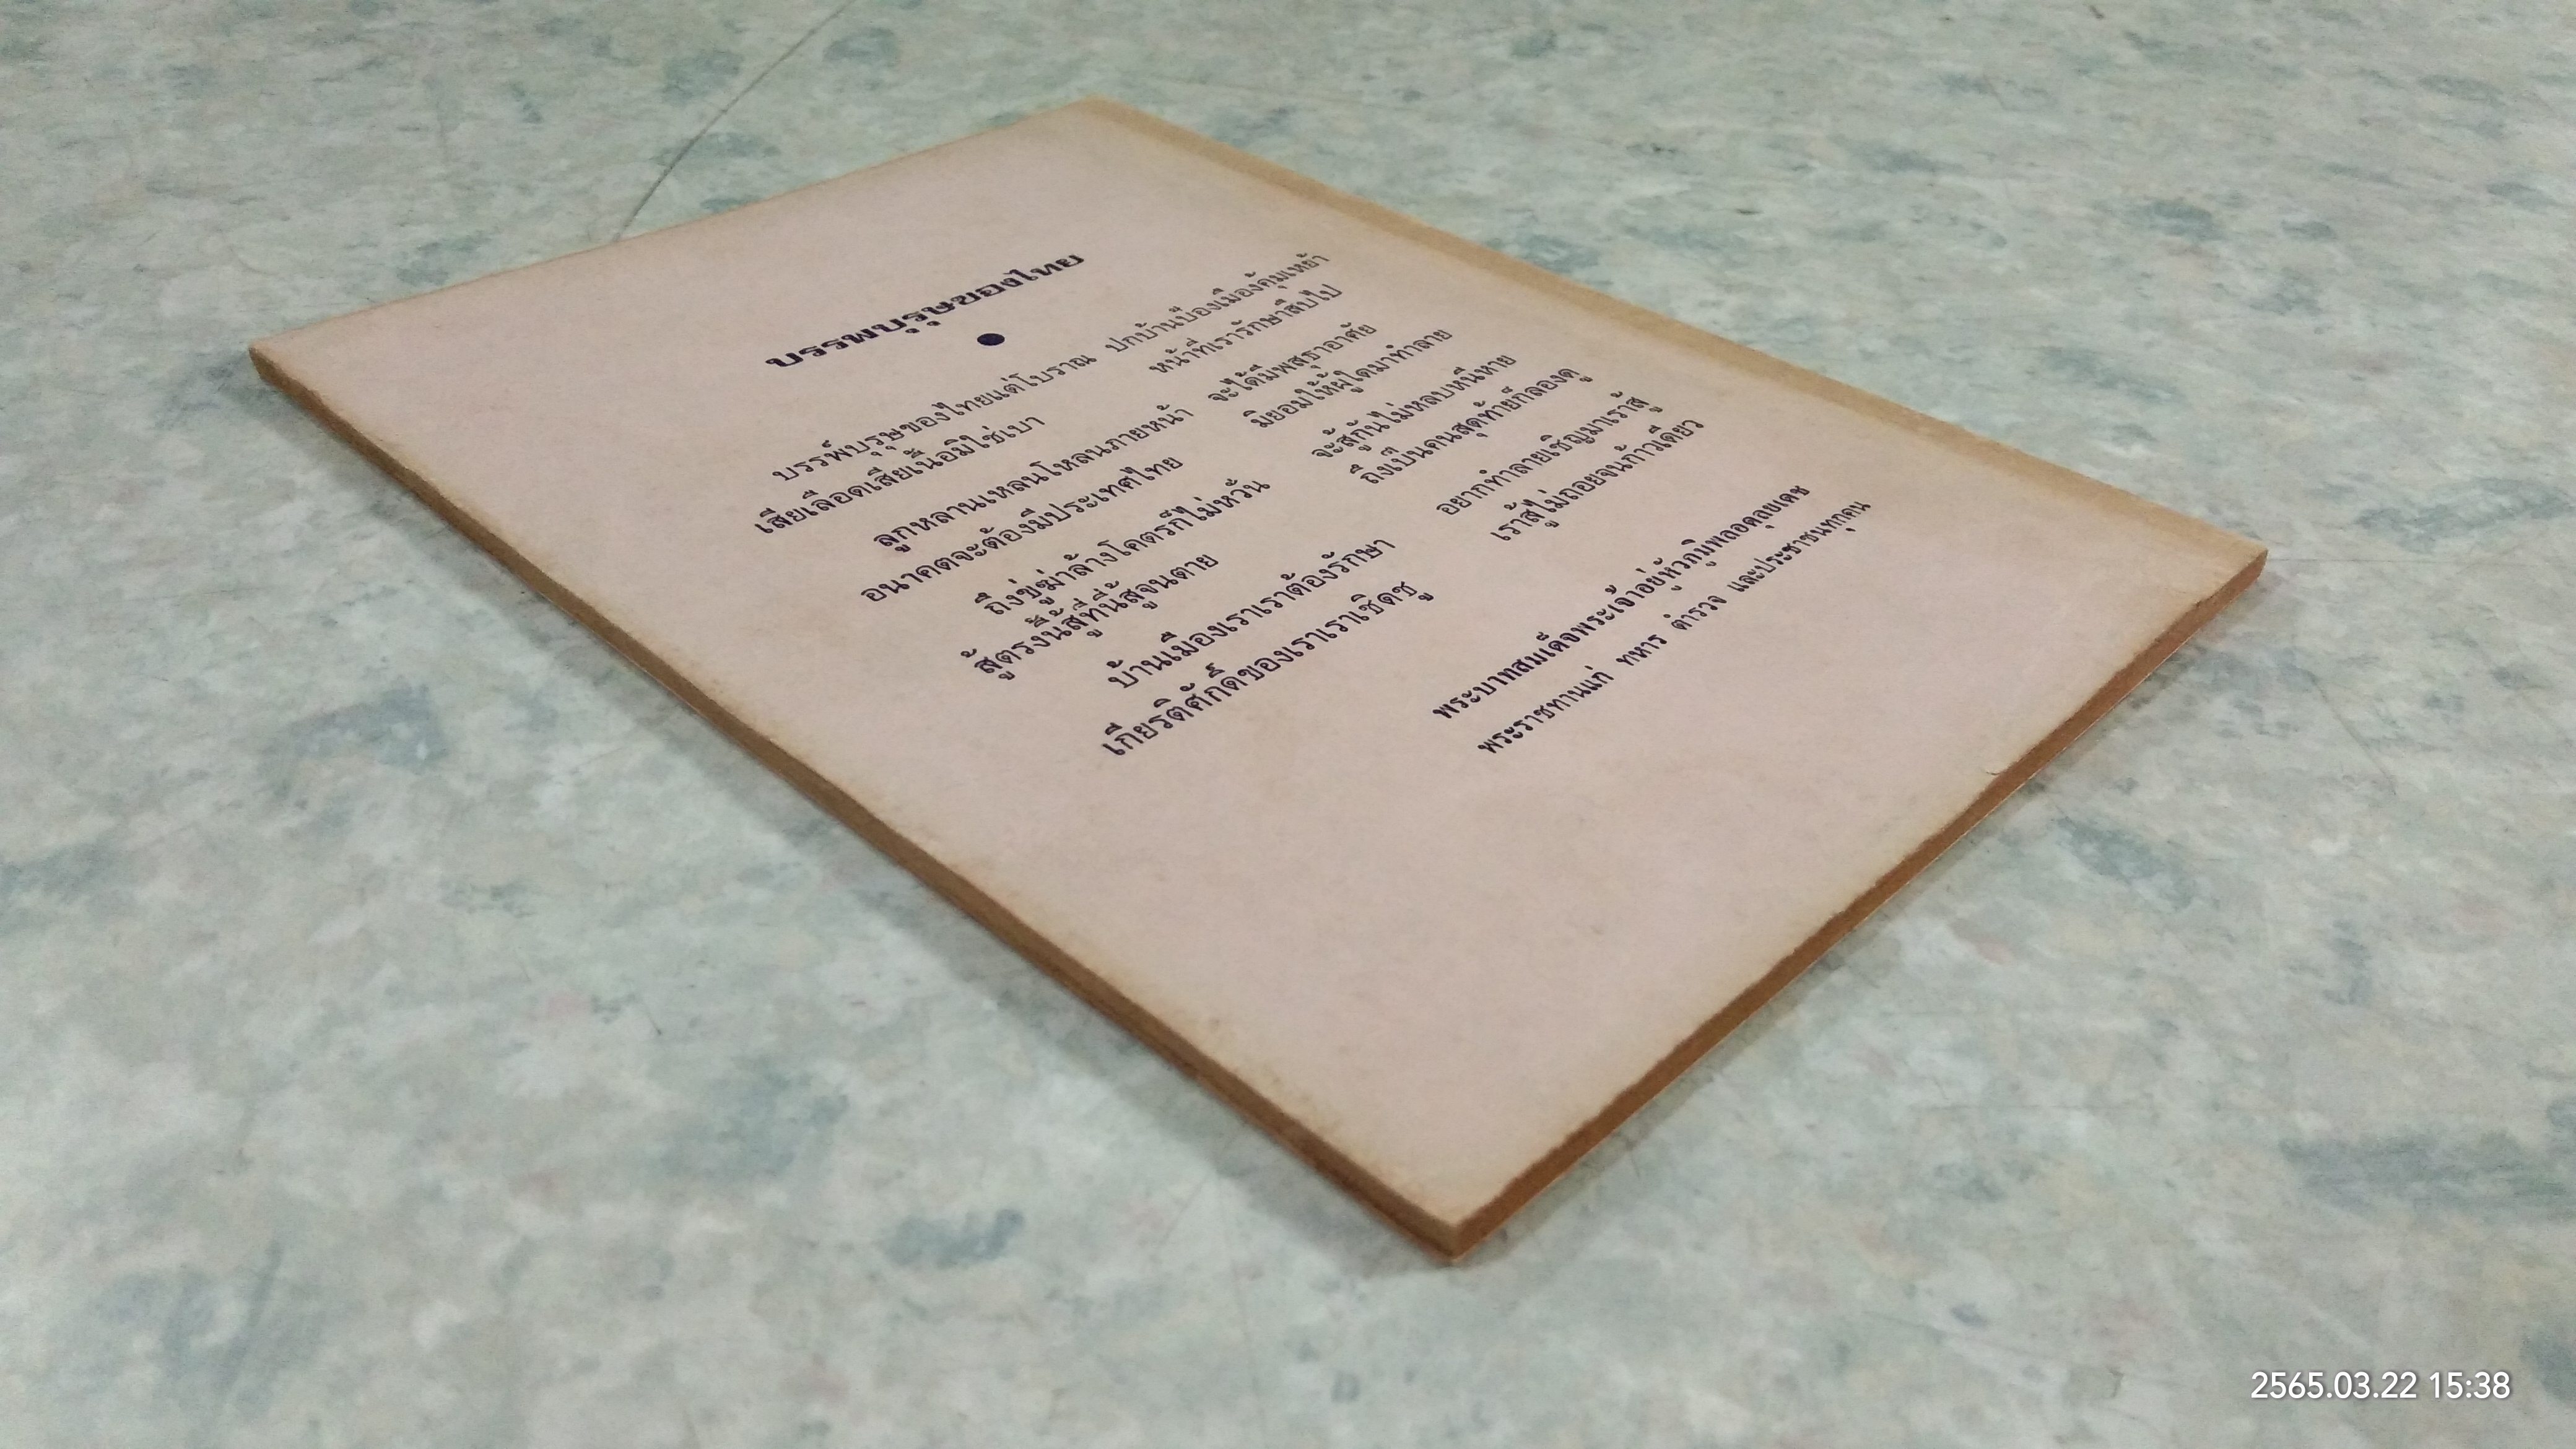 บรรพบุรุษของไทย
บรรพ์บุรุษของไทยแต่โบราณ ปกบ้านป้องเมืองคุ้มเหย้า
เสียเลือดเสียเนื้อมิใช่เบา หน้าที่เรารักษาสืบไป
ลูกหลานเหลนโหลนภายหน้า จะได้มีพสุธาอาศัย
อนาคตจะต้องมีประเทศไทย มิยอมให้ผู้ใดมาทำลาย
ถึงขู่ฆ่าล้างโคตรก็ไม่หวั่น จะสู้กันไม่หลบหนีหาย
สู้ตรงนี้สู้ที่นี่สู้จนตาย ถึงเป็นคนสุดท้ายก็ลองดู
บ้านเมืองเราเราต้องรักษา อยากทำลายเชิญมาเราสู้
เกียรติศักดิ์ของเราเราเชิดชู เราสู้ไม่ถอยจนก้าวเดียว
พระบาทสมเด็จพระเจ้าอยู่หัวภูมิพลอดุลยเดช
พระราชทานแก่ ทหาร ตำรวจ และประชาชนทุกคน
2565.03.22 15:38